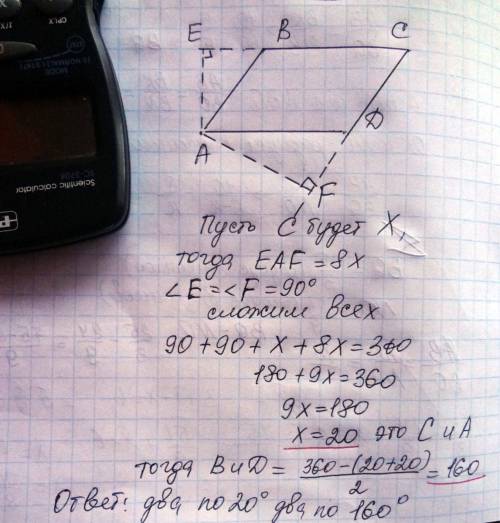 E B C
A D
F
Пусть C будет X,
тогда EAF = 8x
∠E = ∠F = 90°
сложим всех
90 + 90 + x + 8x = 360
180 + 9x = 360
9x = 180
x = 20 это C и A
тогда B и D = 360-(20+20)/2 = 160
Ответ: два по 20° два по 160°
CPLX
MODE
Scientific calculator